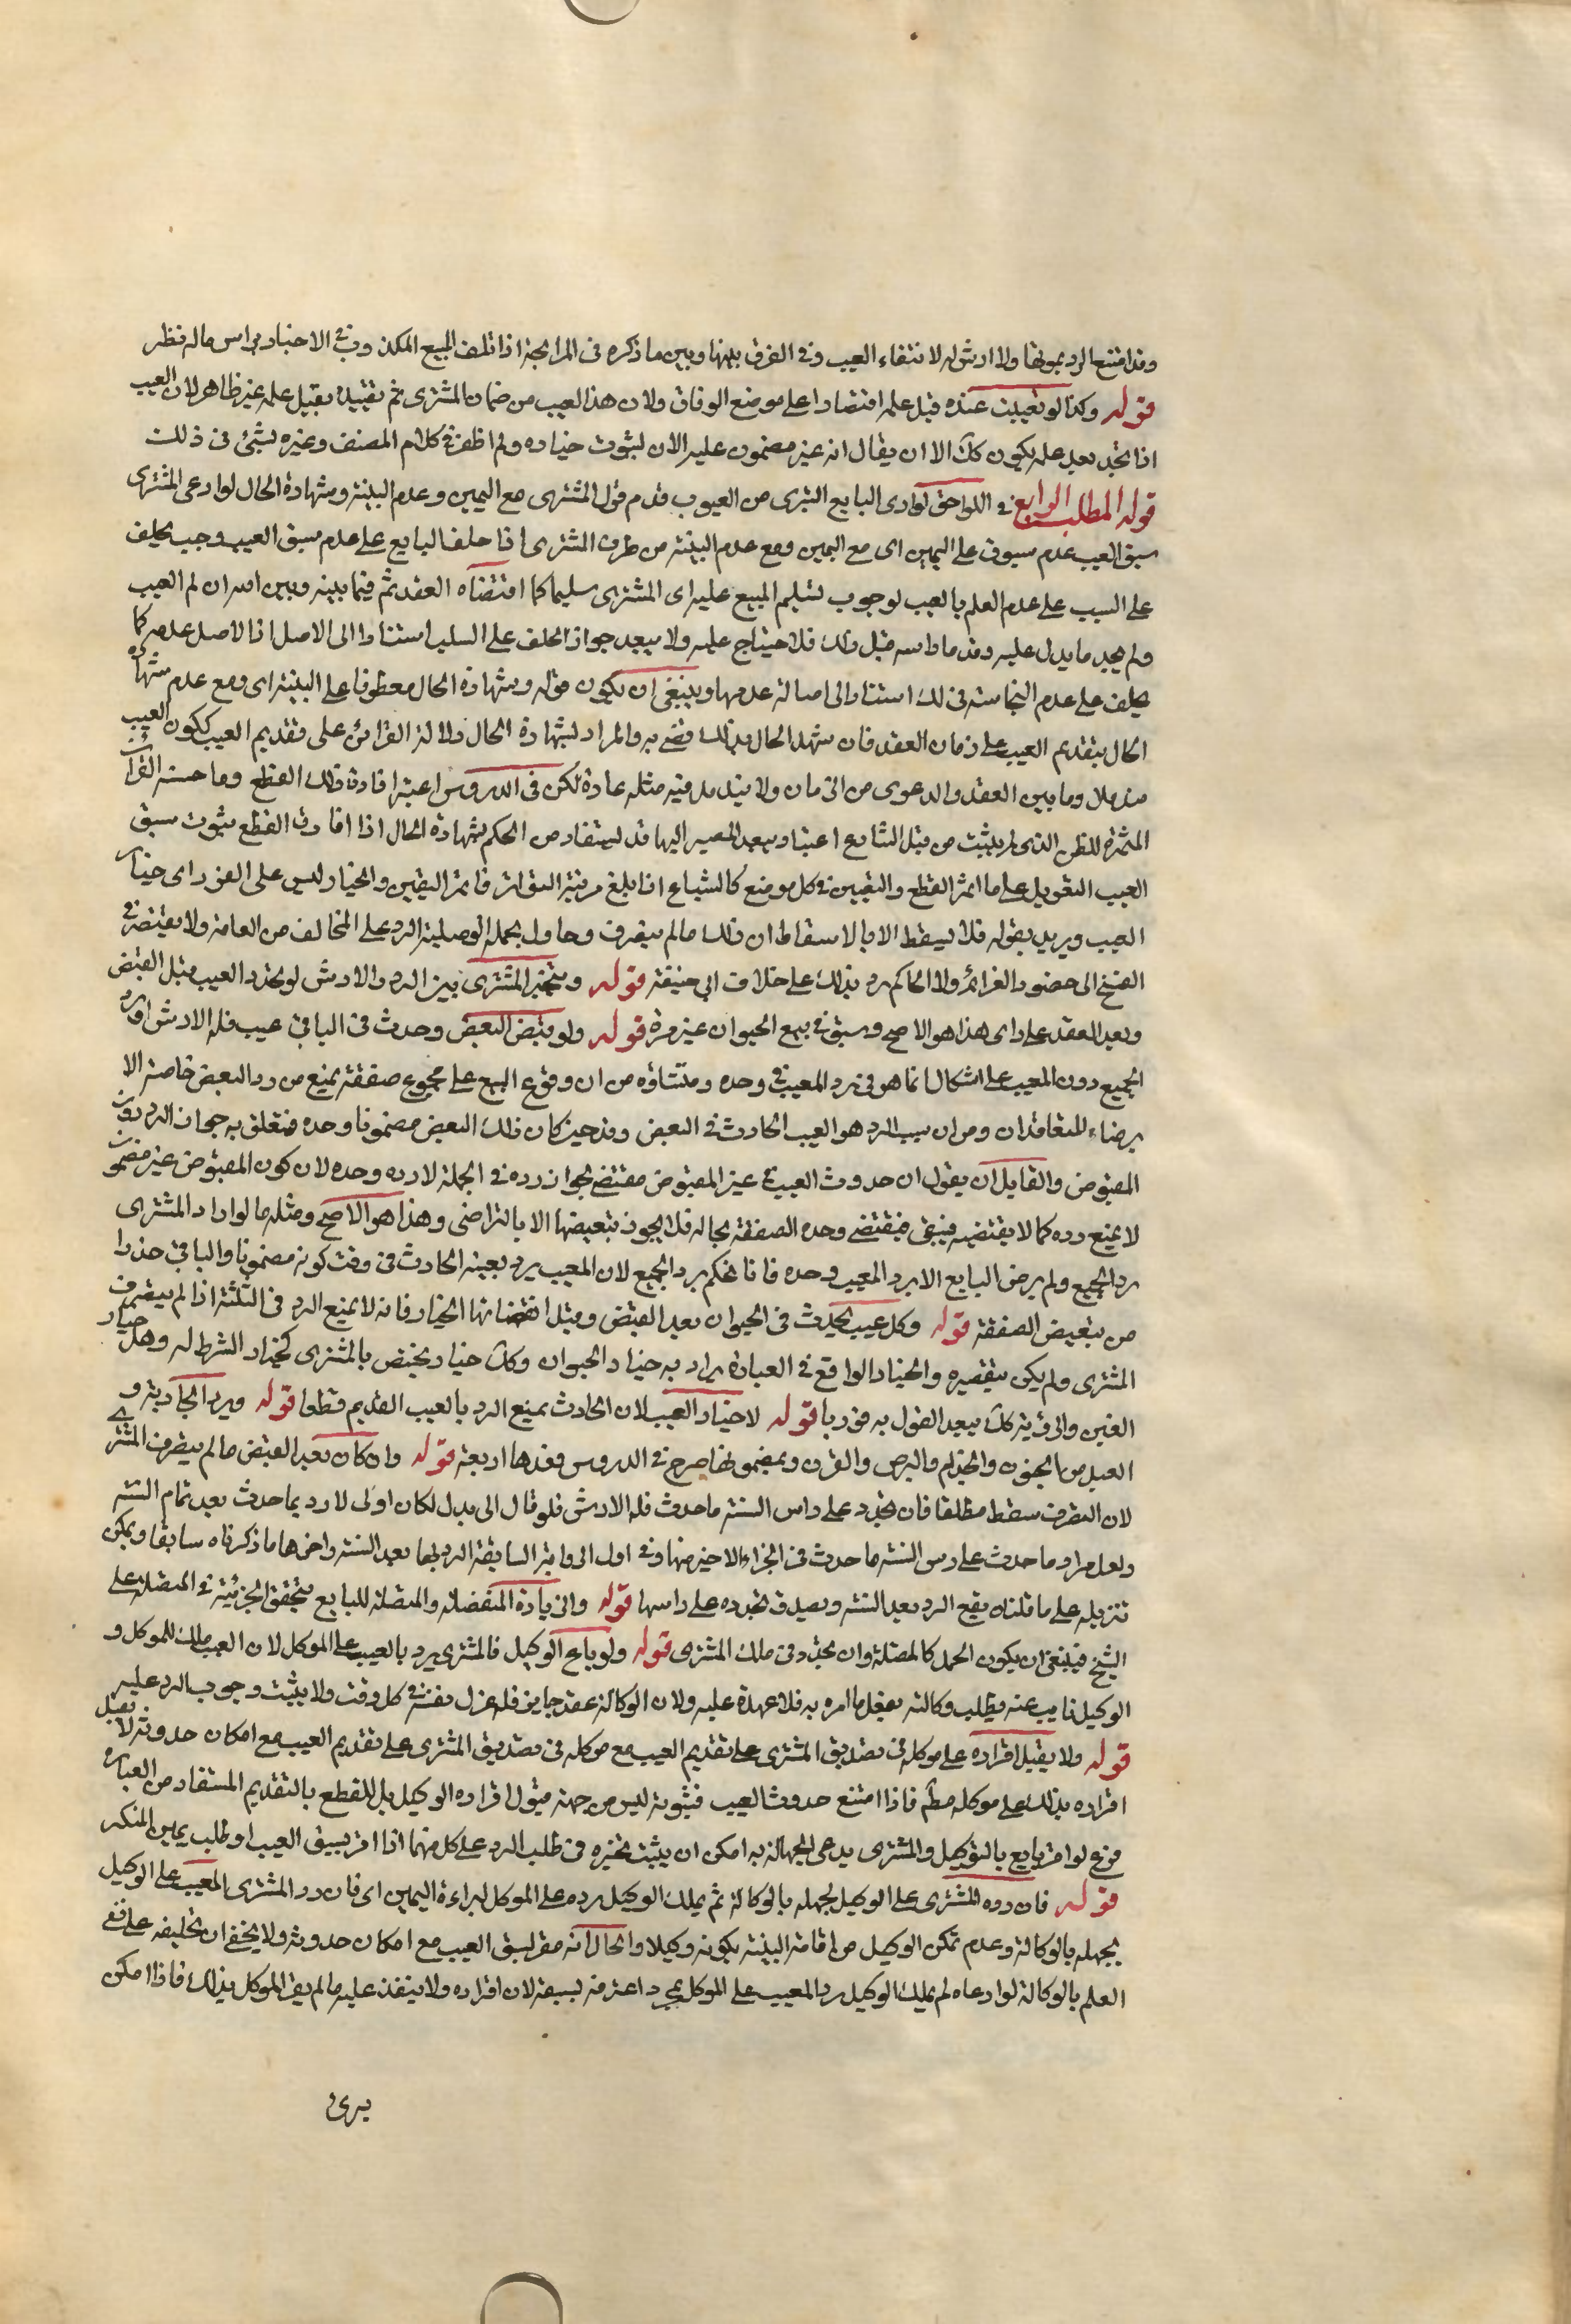 وقد امتنع الرد بموتها ولا ارش له لانتفاء العيب وفي الفرق بينها وبين ما ذكره في المرابحة اذا تلف المبيع الممكن وفي الاخبار براس ماله نظر
قوله وكذا لو تعيبت عنده قبل علمه اقتصارا على موضع الوفاق ولان هذا العيب من ضمان المشترى ثم تقييده بقبل علمه غير ظاهر لان العيب
اذا تجدد بعد علمه يكون كك الا ان يقال انه غير مضمون عليه الان لثبوت خياره ولم اظفر في كلام المصنف وغيره بشئ فى ذلك
قوله المطلب الرابع في اللواحق لو ادعى البايع التبرى من العيوب قدم قول المشترى مع اليمين وعدم البينة وشهادة الحال لو ادعى المشترى
سبق العيب عدم سبوق على اليمين اى مع اليمين ومع عدم البينة من طرف المشترى اذا حلف البايع على عدم سبق العيب وجب يحلف
على السبب على عدم العلم بالعيب لوجوب تسليم المبيع عليه اى المشترى سليما كما اقتضاه العقد ثم فيما بينه وبين الله ان لم العيب
ولم يجد ما يدل عليه وقد مارسه قبل ذلك فلا جناح عليه ولا يبعد جواز الحلف على السلب استنادا الى الاصل اذ الاصل عدمه كما
يحلف على عدم النجاسة فى ذلك استنادا الى اصالة عدمها وينبغي ان يكون قوله وشهادة الحال معطوفا على البينة اى ومع عدم شهادة
الحال بتقديم العيب على زمان العقد فان شهد الحال بذلك قضي به والمراد بشهادة الحال دلالة القرائن على تقديم العيب ككون العيب
مندملا وما بين العقد والدعوى من الزمان ولا يندمل فيه مثله عادة لكن فى الدروس اعتبر افادة ذلك القطع وما حسنه القرائن
المثمرة للظن الذى لم يثبت من قبل الشارع اعتباره يبعد المصير اليها قد يستفاد من الحكم بشهادة الحال اذا افادت القطع بثبوت سبق
العيب التعويل على ما اثمر القطع واليقين في كل موضع كالشياع اذا بلغ مرتبة التواتر فاثمر اليقين والخيار ليس على الفور اى خيار
العيب ويريد بقوله فلا يسقط الا بالاسقاط ان ذلك ما لم يتصرف وحاول بجملة الوصلية الرد على المخالف من العامة ولا يفتقر في
الفسخ الى حضور الغرائم ولا الحاكم رد بذلك على خلاف ابي حنيفة قوله ويتخير المشترى بين الرد والارش لو تجدد العيب قبل القبض
وبعد العقد على راى هذا هو الاصح وسبق في بيع الحيوان غير مرة قوله ولو قبض البعض وحدث فى الباقي عيب فله الارش او رد
الجميع دون المعيب على اشكال انما هو فى رد المعيب في وحده ومنشاؤه من ان وقوع البيع على مجموع صفقة يمنع من رد البعض خاصة الا
برضاء المتعاقدان ومن ان سبب الرد هو العيب الحادث في البعض وقد حين كان ذلك البعض مضمونا وحده فتعلق به جواز الرد دون
المقبوض والقايل ان يقول ان حدوث العيب في غير المقبوض مقتضي لجواز رده في الجملة لا رده وحده لان كون المقبوض غير مضمون
لا يمنع رده كما لا يقتضيه فيبقى مقتضي وحدة الصفقة بحاله فلا يجوز تبعيضها الا بالتراضى وهذا هو الاصح ومثله ما لو اراد المشترى
رد الجميع ولم يرض البايع الا برد المعيب وحده فانا نحكم برد الجميع لان المعيب يرد بعيبه الحادث فى وقت كونه مضمونا والباقي حذرا
من تبعيض الصفقة قوله وكل عيب يحدث فى الحيوان بعد القبض وقبل انقضائها الخيار فانه لا يمنع الرد فى الثلثة اذا لم يتصرف
المشترى ولم يكن بتقصيره والخيار الواقع في العبارة يراد به خيار الحيوان وكك خيار يختص بالمشترى كخيار الشرط له وهل خيار
الغبن والرؤية كك يبعد القول به فورا قوله لا خيار العيب لان الحادث يمنع الرد بالعيب القديم قطعا قوله ويرد الجارية و
العبد من الجنون والجذام والبرص والقرن وبمضمونها صرح في الدروس وعدها اربعة قوله وان كان بعد القبض ما لم يتصرف المشترى
لان التصرف سقط مطلقا فان تجدد على راس السنة ما حدث فله الارش فلو قال الى بدل لكان اولى لا رد بما حدث بعد تمام السنة
ولعل مراده ما حدث على رس السنة ما حدث في الجزء الاخير منها وفي اول الرواية السابقة الرد بها بعد السنة واخرها ما ذكرناه سابقا ويمكن
تنزيله على ما قلناه يقع الرد بعد السنة ويصدق تجدده على راسها قوله والزيادة المنفصلة والمتصلة للبايع يتحقق الجزئية في المتصلة على
الشيخ فينبغي ان يكون الحمل كالمتصلة وان تجدد في ملك المشترى قوله ولو باع الوكيل فالمشترى يرد بالعيب على الموكل لان العيب ملك للموكل و
الوكيل نايب عنه يطلب وكالته بفعل ما امره به فلا عهدة عليه ولان الوكالة عقد جايز فله عزل نفسه في كل وقت ولا يثبت وجوب الرد عليه
قوله ولا يقبل اقراره على موكله فى تصديق المشترى على تقديم العيب مع موكله فى تصديق المشترى على تقديم العيب مع امكان حدوثه لا يقبل
اقراره بذلك على موكله مطم فاذا امتنع حدوث العيب فثبوته ليس من جهة قبول اقراره الوكيل بل للقطع بالتقديم المستفاد من العبارة
فرع لو اقر بايع بالتوكيل والمشترى يدعى الجهالة به امكن ان يثبت تخيره فى طلب الرد على كل منهما اذا اقر بسبق العيب او طلب يمين المنكر
قوله فان رده المشترى على الوكيل لجهله بالوكالة ثم يملك الوكيل رده على الموكل لبراءة اليمين اى فان رد المشترى المعيب على الوكيل
بجهله بالوكالة وعدم تمكن الوكيل من اقامة البينة بكونه وكيلا والحال انه مقر بسبق العيب مع امكان حدوثه ولا يخفى ان تحليفه على نفي
العلم بالوكالة لو ادعاه لم يملك الوكيل رد المعيب على الموكل بمجرد اعترفه بسبقه لان اقراره ولا ينفذ عليه ما لم يقر الموكل بذلك فاذا امكن
يرى